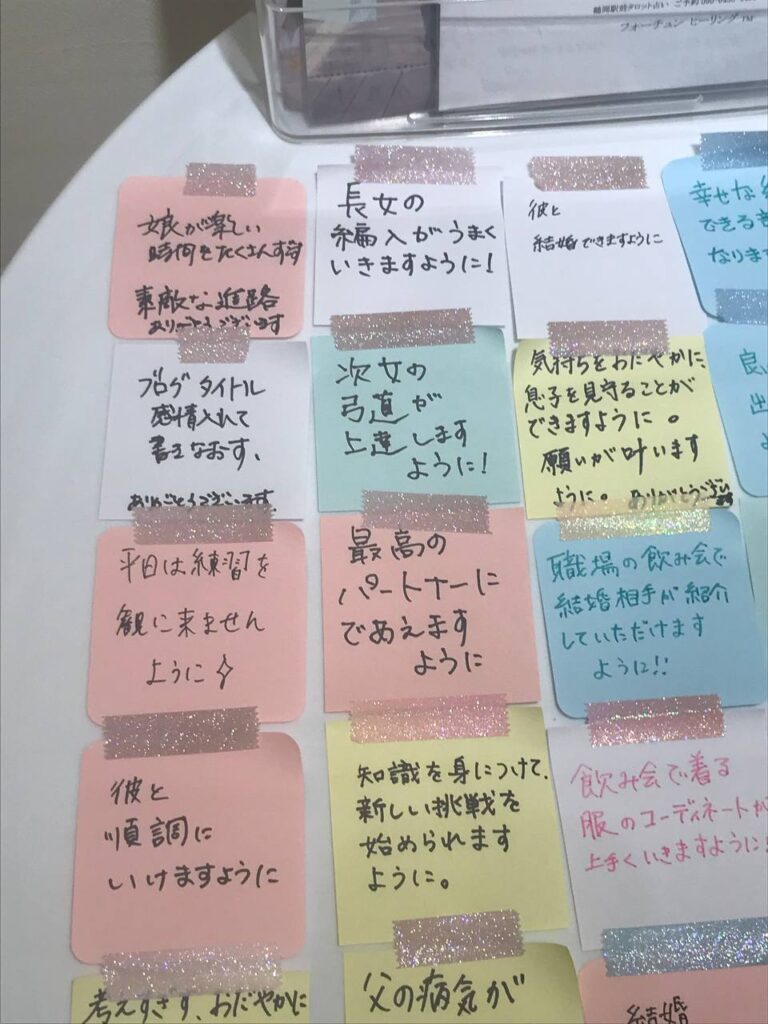 フォーチュン ヒーリング TM
娘が楽しい
時間をたくさんすごす
素敵な進路
ありがとうございます
長女の
編入がうまく
いきますように!
彼と
結婚できますように
幸せな
できる
なります
ブログ タイトル
感情入れて
書きなおす、
ありがとうございます。
次女の
弓道が
上達します
ように!
気持ちをおだやかに、
息子を見守ることが
できますように。
願いが叶います
ように。ありがとうござい
ます
良い
出
よ
平日は練習を
観に来ません
ように
最高の
パートナーに
であえます
ように
職場の飲み会で
結婚相手が紹介
していただけます
ように!!
彼と
順調に
いけますように
知識を身につけて、
新しい挑戦を
始められます
ように。
飲み会で着る
服のコーディネートが
上手くいきますように!
考えすぎず、おだやかに
父の病気が
結婚